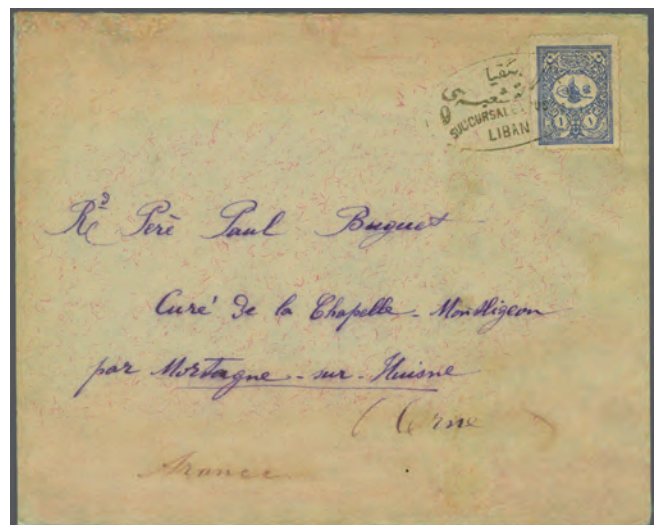 SUCCURSALE
LIBAN
١ ١
Rd Père Paul Buguet
Curé de la Chapelle - Montligeon
par Mortagne - sur - Huisne
(Orne
France